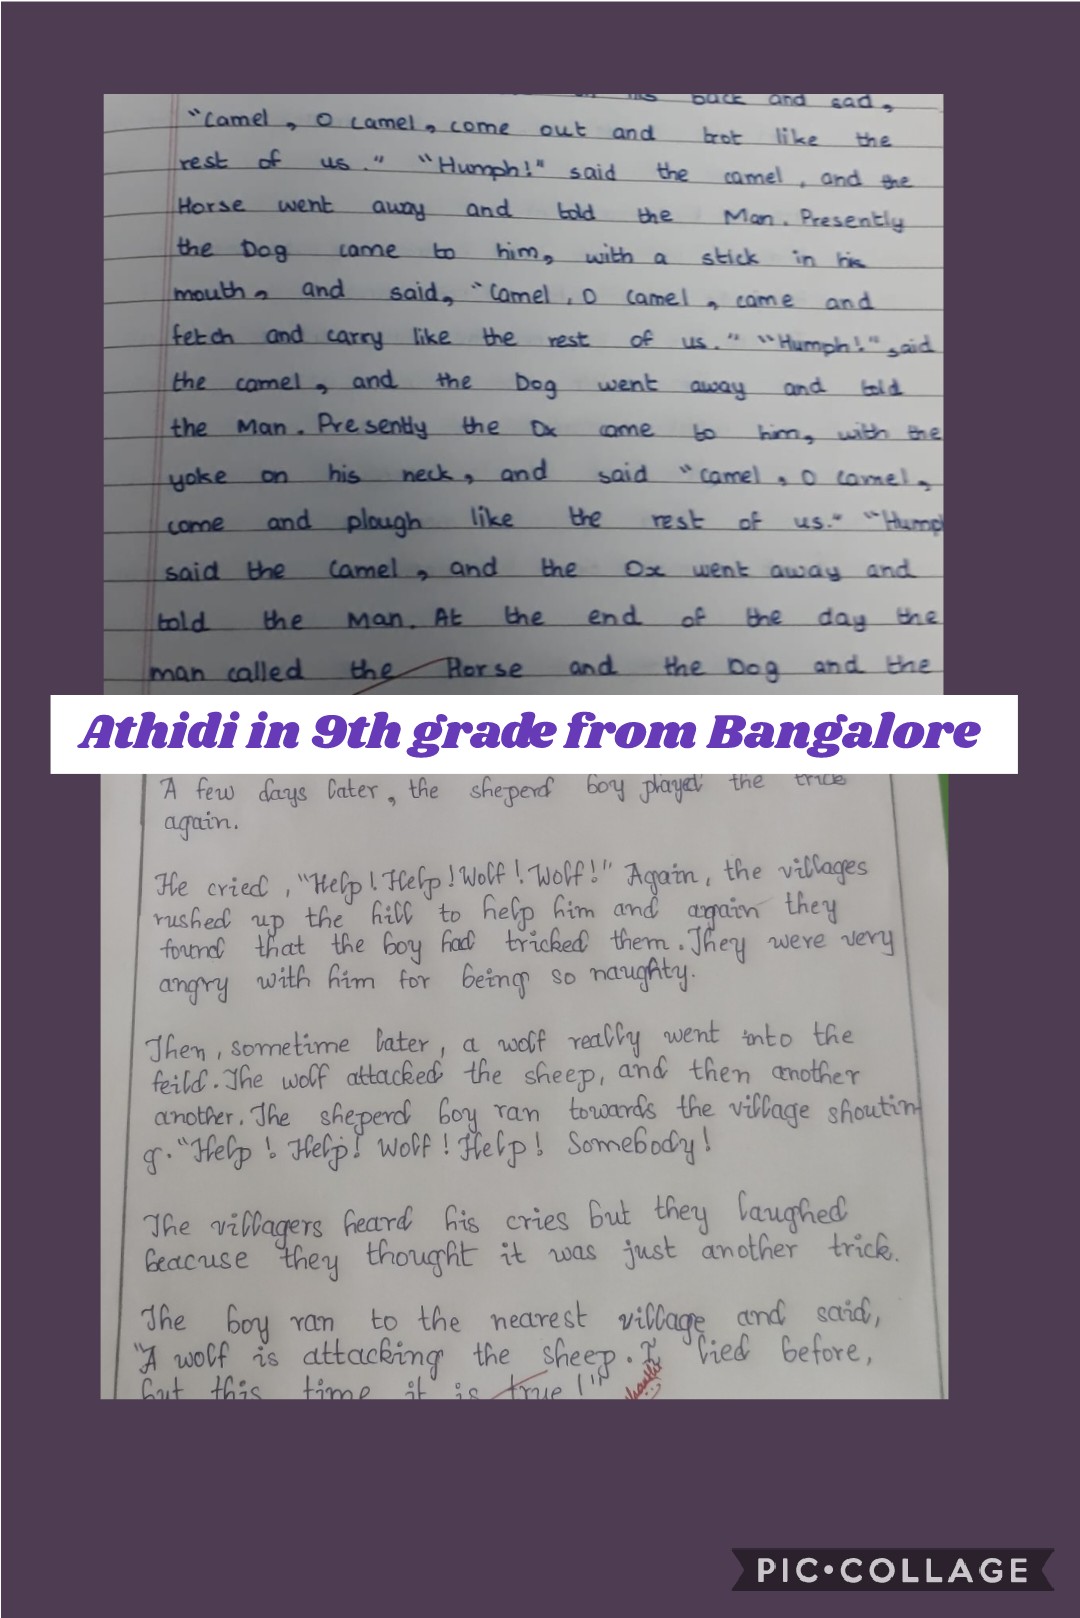 his back and sad,
"Camel, O camel, come out and trot like the
rest of us." "Humph!" said the camel, and the
Horse went away and told the Man. Presently
the Dog came to him, with a stick in his
mouth, and said, "Camel, O camel, come and
fetch and carry like the rest of us." "Humph!" said
the camel, and the Dog went away and told
the Man. Presently the Ox came to him, with the
yoke on his neck, and said "Camel, O camel,
come and plough like the rest of us." "Hump
said the Camel, and the Ox went away and
told the Man. At the end of the day the
man called the Horse and the Dog and the
Athidi in 9th grade from Bangalore
A few days later, the sheperd boy played the trick
again.
He cried, "Help! Help! Wolf! Wolf!" Again, the villages
rushed up the hill to help him and again they
found that the boy had tricked them. They were very
angry with him for being so naughty.
Then, sometime later, a wolf really went into the
feild. The wolf attacked the sheep, and then another
another. The sheperd boy ran towards the village shoutin
g. "Help! Help! Wolf! Help! Somebody!
The villagers heard his cries but they laughed
beacuse they thought it was just another trick.
The boy ran to the nearest village and said,
"A wolf is attacking the sheep. I lied before,
but this time it is true!"
PIC•COLLAGE